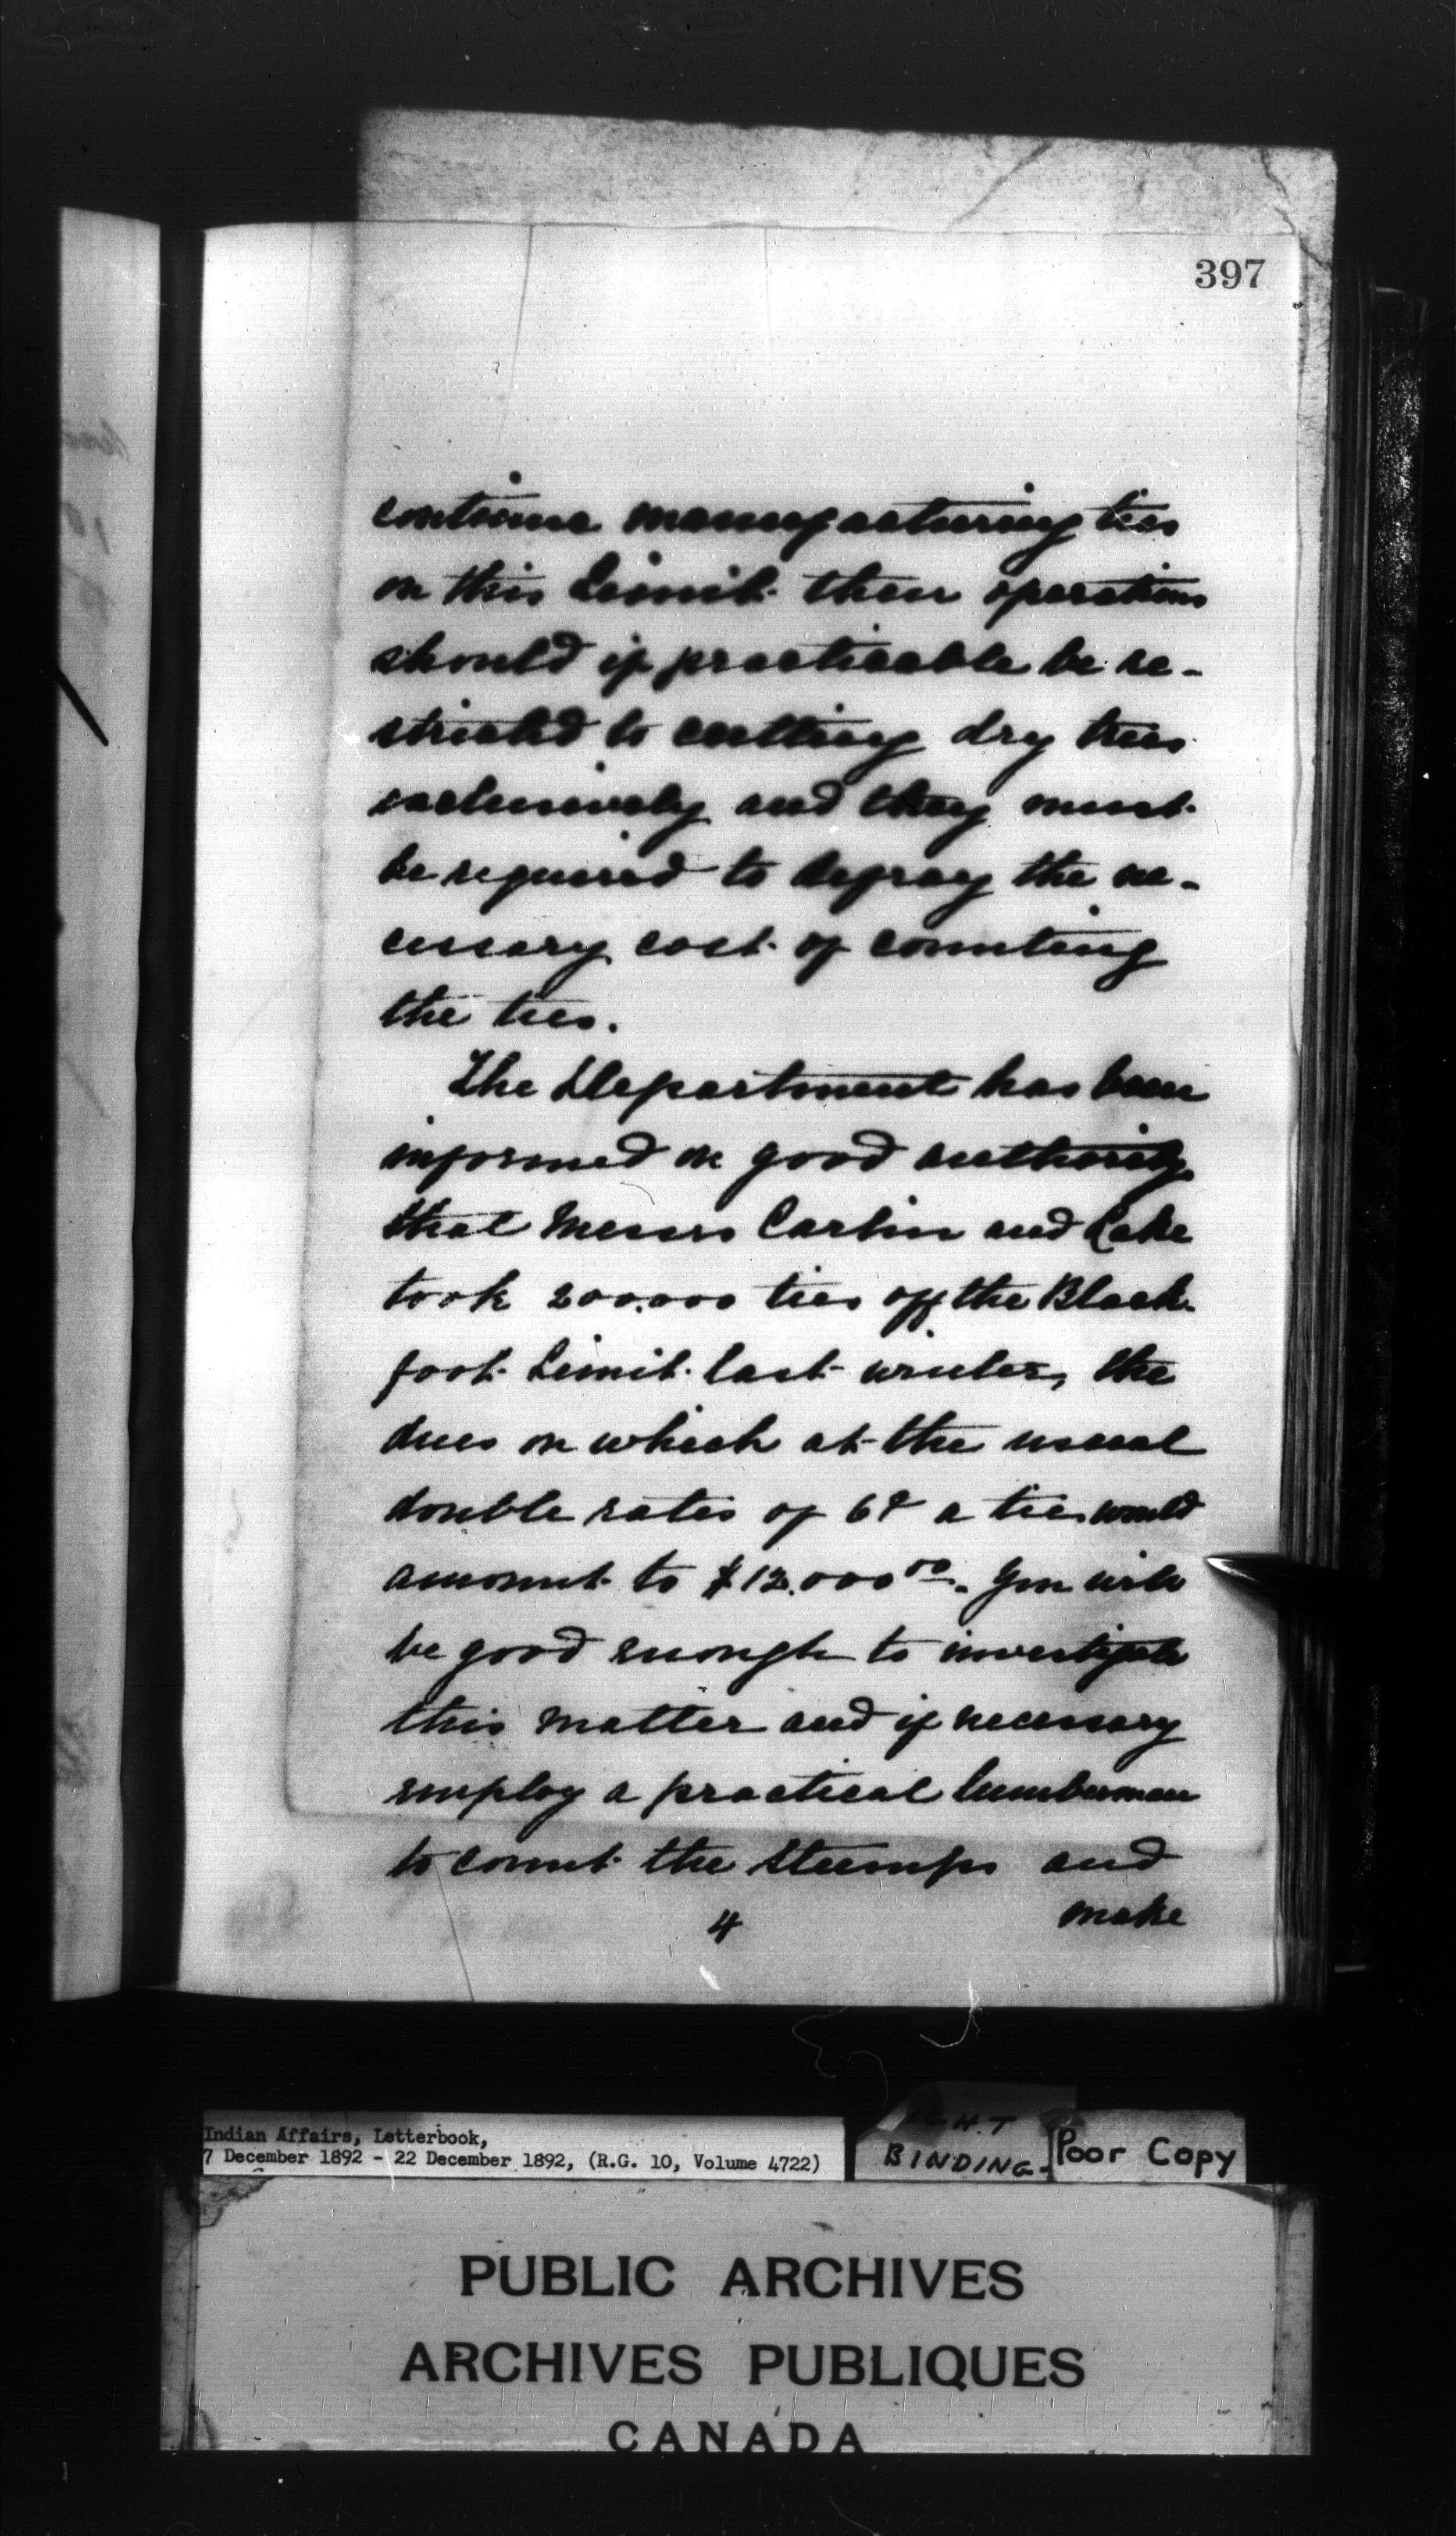 397
continue manufacturing ties
on this Limit their operations
should if practicable be re-
stricted to cutting dry trees
exclusively and they must
be required to defray the ne-
cessary cost of counting
the ties.
The Department has been
informed on good authority
that Messrs Carlin and Lake
took 200.000 ties off the Black-
foot Limit last winter, the
dues on which at the usual
double rates of 6¢ a tie would
amount to $12.000 00. You will
be good enough to investigate
this matter and if necessary
employ a practical lumberman
to count the stumps and
4 make
Indian Affairs, Letterbook,
7 December 1892 - 22 December 1892, (R.G. 10, Volume 4722)
BINDING-
Poor Copy
PUBLIC ARCHIVES
ARCHIVES PUBLIQUES
CANADA